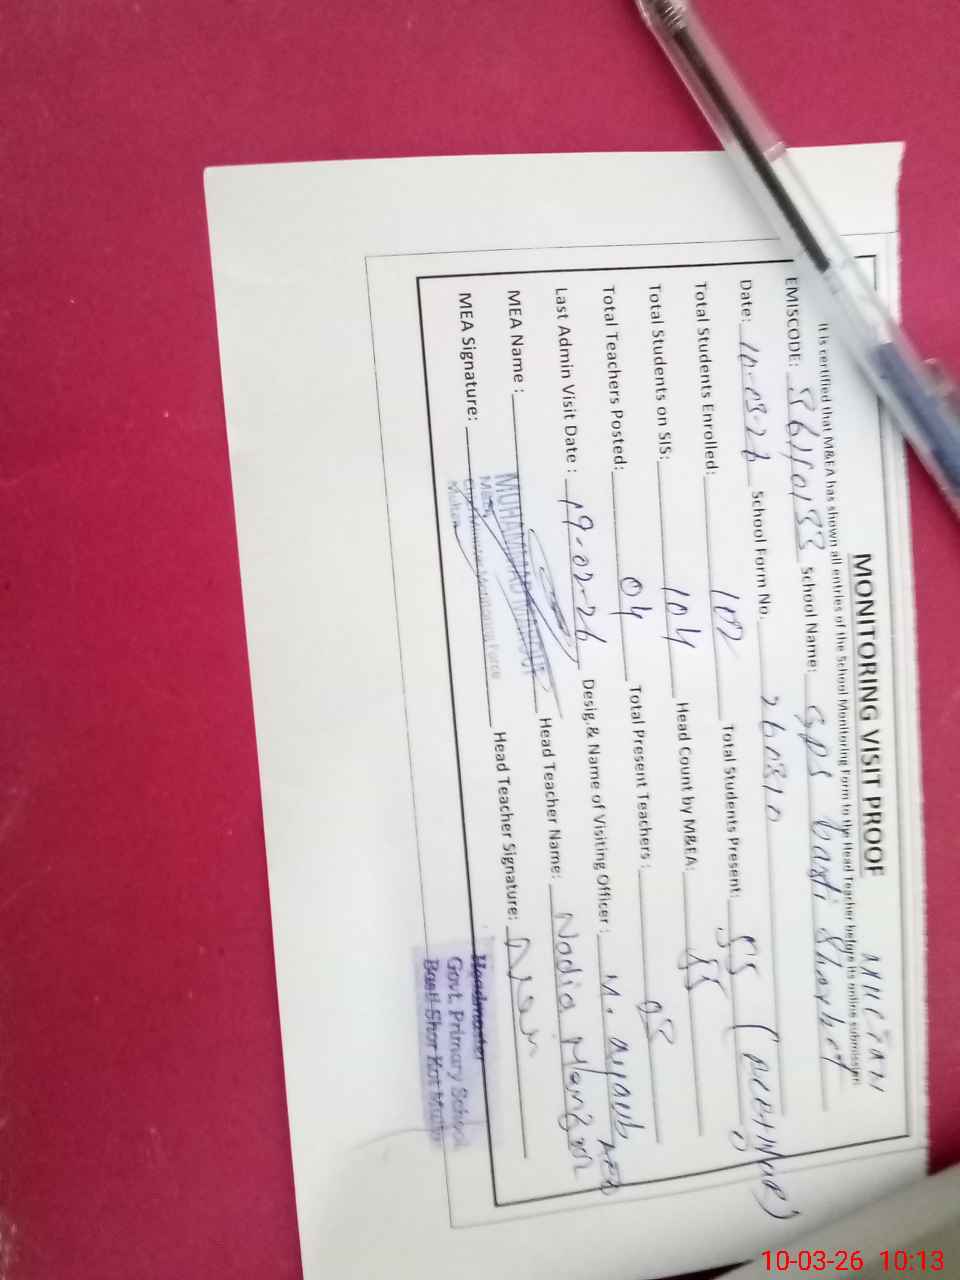 MONITORING VISIT PROOF MULTAN
It is certified that M&EA has shown all entries of the School Monitoring Form to the Head Teacher before its online submission
EMISCODE: School Name: GPS basti Shorkot
Date: 10-03-26 School Form No. 260310
Total Students Enrolled: 102 Total Students Present: 55
Total Students on SIS: 104 Head Count by M&EA: 55
Total Teachers Posted: 04 Total Present Teachers : 03
Last Admin Visit Date : 19-02-26 Desig.& Name of Visiting Officer : M. Ayaub AEO
MEA Name : MUHAMMAD Head Teacher Name: Nadia Manzoor
MEA Signature: Head Teacher Signature:
Monitoring Force
Multan
Headmaster
Govt. Primary School
Basti Shor Kot Multan
10-03-26 10:13